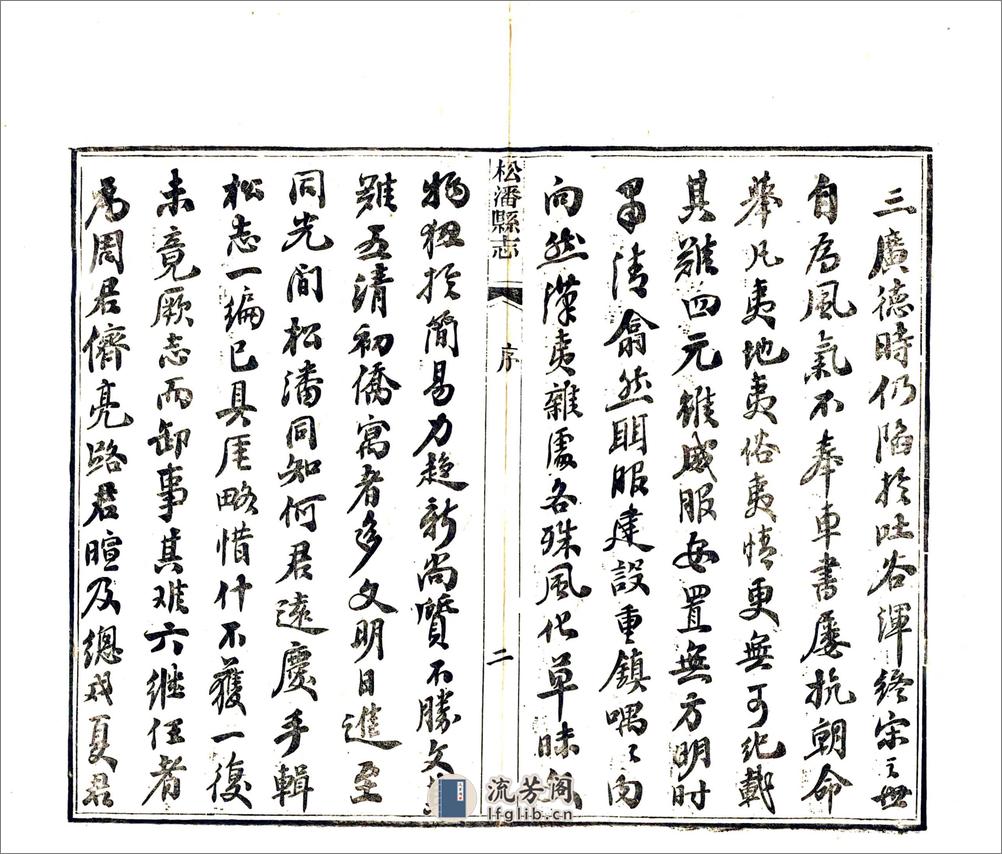 三廣德時仍陷於吐谷渾終宋之世
自為風氣不奉車書屢抗朝命
舉凡夷地夷俗夷情更無可紀載
其難四元雖威服安置無方明時
清翕然服建設重鎮喁〻内
向然漢夷雜處各殊風化草昧
松潘縣志 序 二
狃於簡易力趨新尚質不勝文
難五清初僑寓者多文明日進至
同光間松潘同知何君遠慶手輯
松志一編已具厓略惜什不獲一復
未竟厥志而卸事其难六继任者
為周君儕亮路君暄及總戎夏君
流芳阁
lfglib.cn